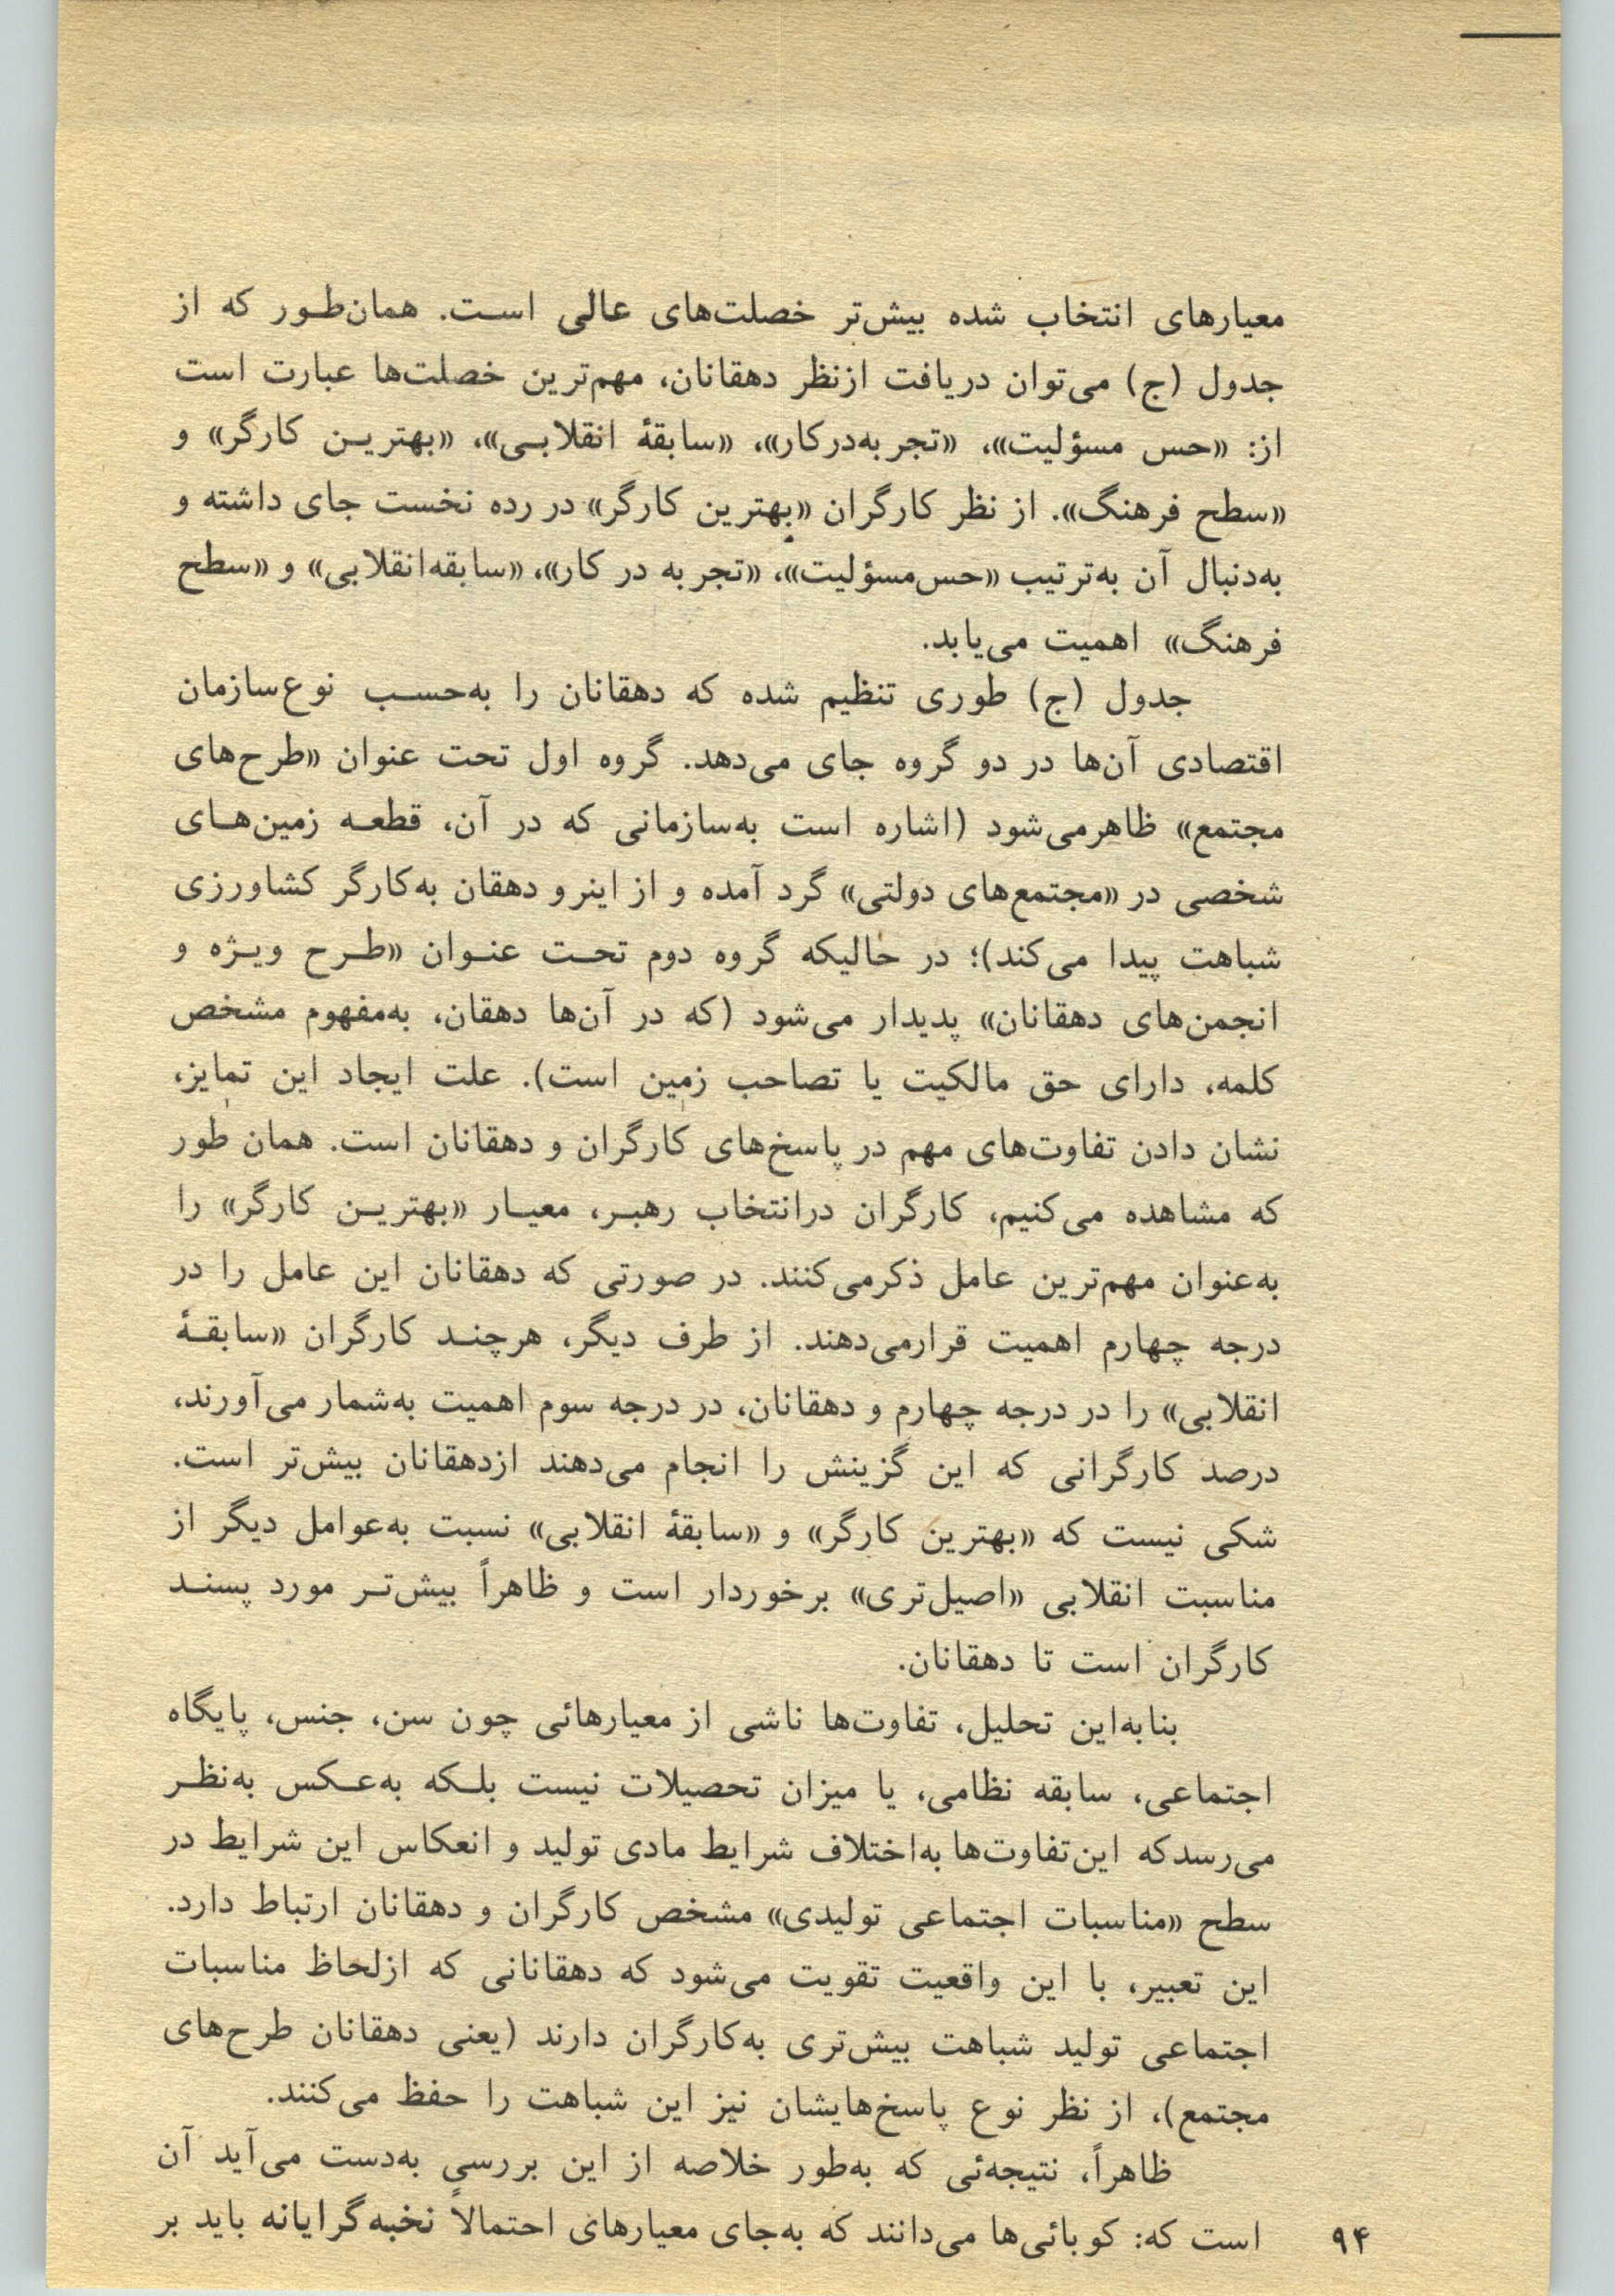 معیارهای انتخاب شده بیش‌تر خصلت‌های عالی است. همان‌طور که از
جدول (ج) می‌توان دریافت ازنظر دهقانان، مهم‌ترین خصلت‌ها عبارت است
از: «حس مسؤلیت»، «تجربه‌درکار»، «سابقهٔ انقلابی»، «بهترین کارگر» و
«سطح فرهنگ». از نظر کارگران «بهترین کارگر» در رده نخست جای داشته و
به‌دنبال آن به‌ترتیب «حس‌مسؤلیت»، «تجربه در کار»، «سابقه‌انقلابی» و «سطح
فرهنگ» اهمیت می‌یابد.
جدول (ج) طوری تنظیم شده که دهقانان را به‌حسب نوع‌سازمان
اقتصادی آن‌ها در دو گروه جای می‌دهد. گروه اول تحت عنوان «طرح‌های
مجتمع» ظاهرمی‌شود (اشاره است به‌سازمانی که در آن، قطعه زمین‌های
شخصی در «مجتمع‌های دولتی» گرد آمده و از اینرو دهقان به‌کارگر کشاورزی
شباهت پیدا می‌کند)؛ در حالیکه گروه دوم تحت عنوان «طرح ویژه و
انجمن‌های دهقانان» پدیدار می‌شود (که در آن‌ها دهقان، به‌مفهوم مشخص
کلمه، دارای حق مالکیت یا تصاحب زمین است). علت ایجاد این تمایز،
نشان دادن تفاوت‌های مهم در پاسخ‌های کارگران و دهقانان است. همان طور
که مشاهده می‌کنیم، کارگران درانتخاب رهبر، معیار «بهترین کارگر» را
به‌عنوان مهم‌ترین عامل ذکرمی‌کنند. در صورتی که دهقانان این عامل را در
درجه چهارم اهمیت قرارمی‌دهند. از طرف دیگر، هرچند کارگران «سابقهٔ
انقلابی» را در درجه چهارم و دهقانان، در درجه سوم اهمیت به‌شمار می‌آورند،
درصد کارگرانی که این گزینش را انجام می‌دهند ازدهقانان بیش‌تر است.
شکی نیست که «بهترین کارگر» و «سابقهٔ انقلابی» نسبت به‌عوامل دیگر از
مناسبت انقلابی «اصیل‌تری» برخوردار است و ظاهراً بیش‌تر مورد پسند
کارگران است تا دهقانان.
بنابه‌این تحلیل، تفاوت‌ها ناشی از معیارهائی چون سن، جنس، پایگاه
اجتماعی، سابقه نظامی، یا میزان تحصیلات نیست بلکه به‌عکس به‌نظر
می‌رسدکه این‌تفاوت‌ها به‌اختلاف شرایط مادی تولید و انعکاس این شرایط در
سطح «مناسبات اجتماعی تولیدی» مشخص کارگران و دهقانان ارتباط دارد.
این تعبیر، با این واقعیت تقویت می‌شود که دهقانانی که ازلحاظ مناسبات
اجتماعی تولید شباهت بیش‌تری به‌کارگران دارند (یعنی دهقانان طرح‌های
مجتمع)، از نظر نوع پاسخ‌هایشان نیز این شباهت را حفظ می‌کنند.
ظاهراً، نتیجه‌ئی که به‌طور خلاصه از این بررسی به‌دست می‌آید آن
است که: کوبائی‌ها می‌دانند که به‌جای معیارهای احتمالاً نخبه‌گرایانه باید بر
۹۴